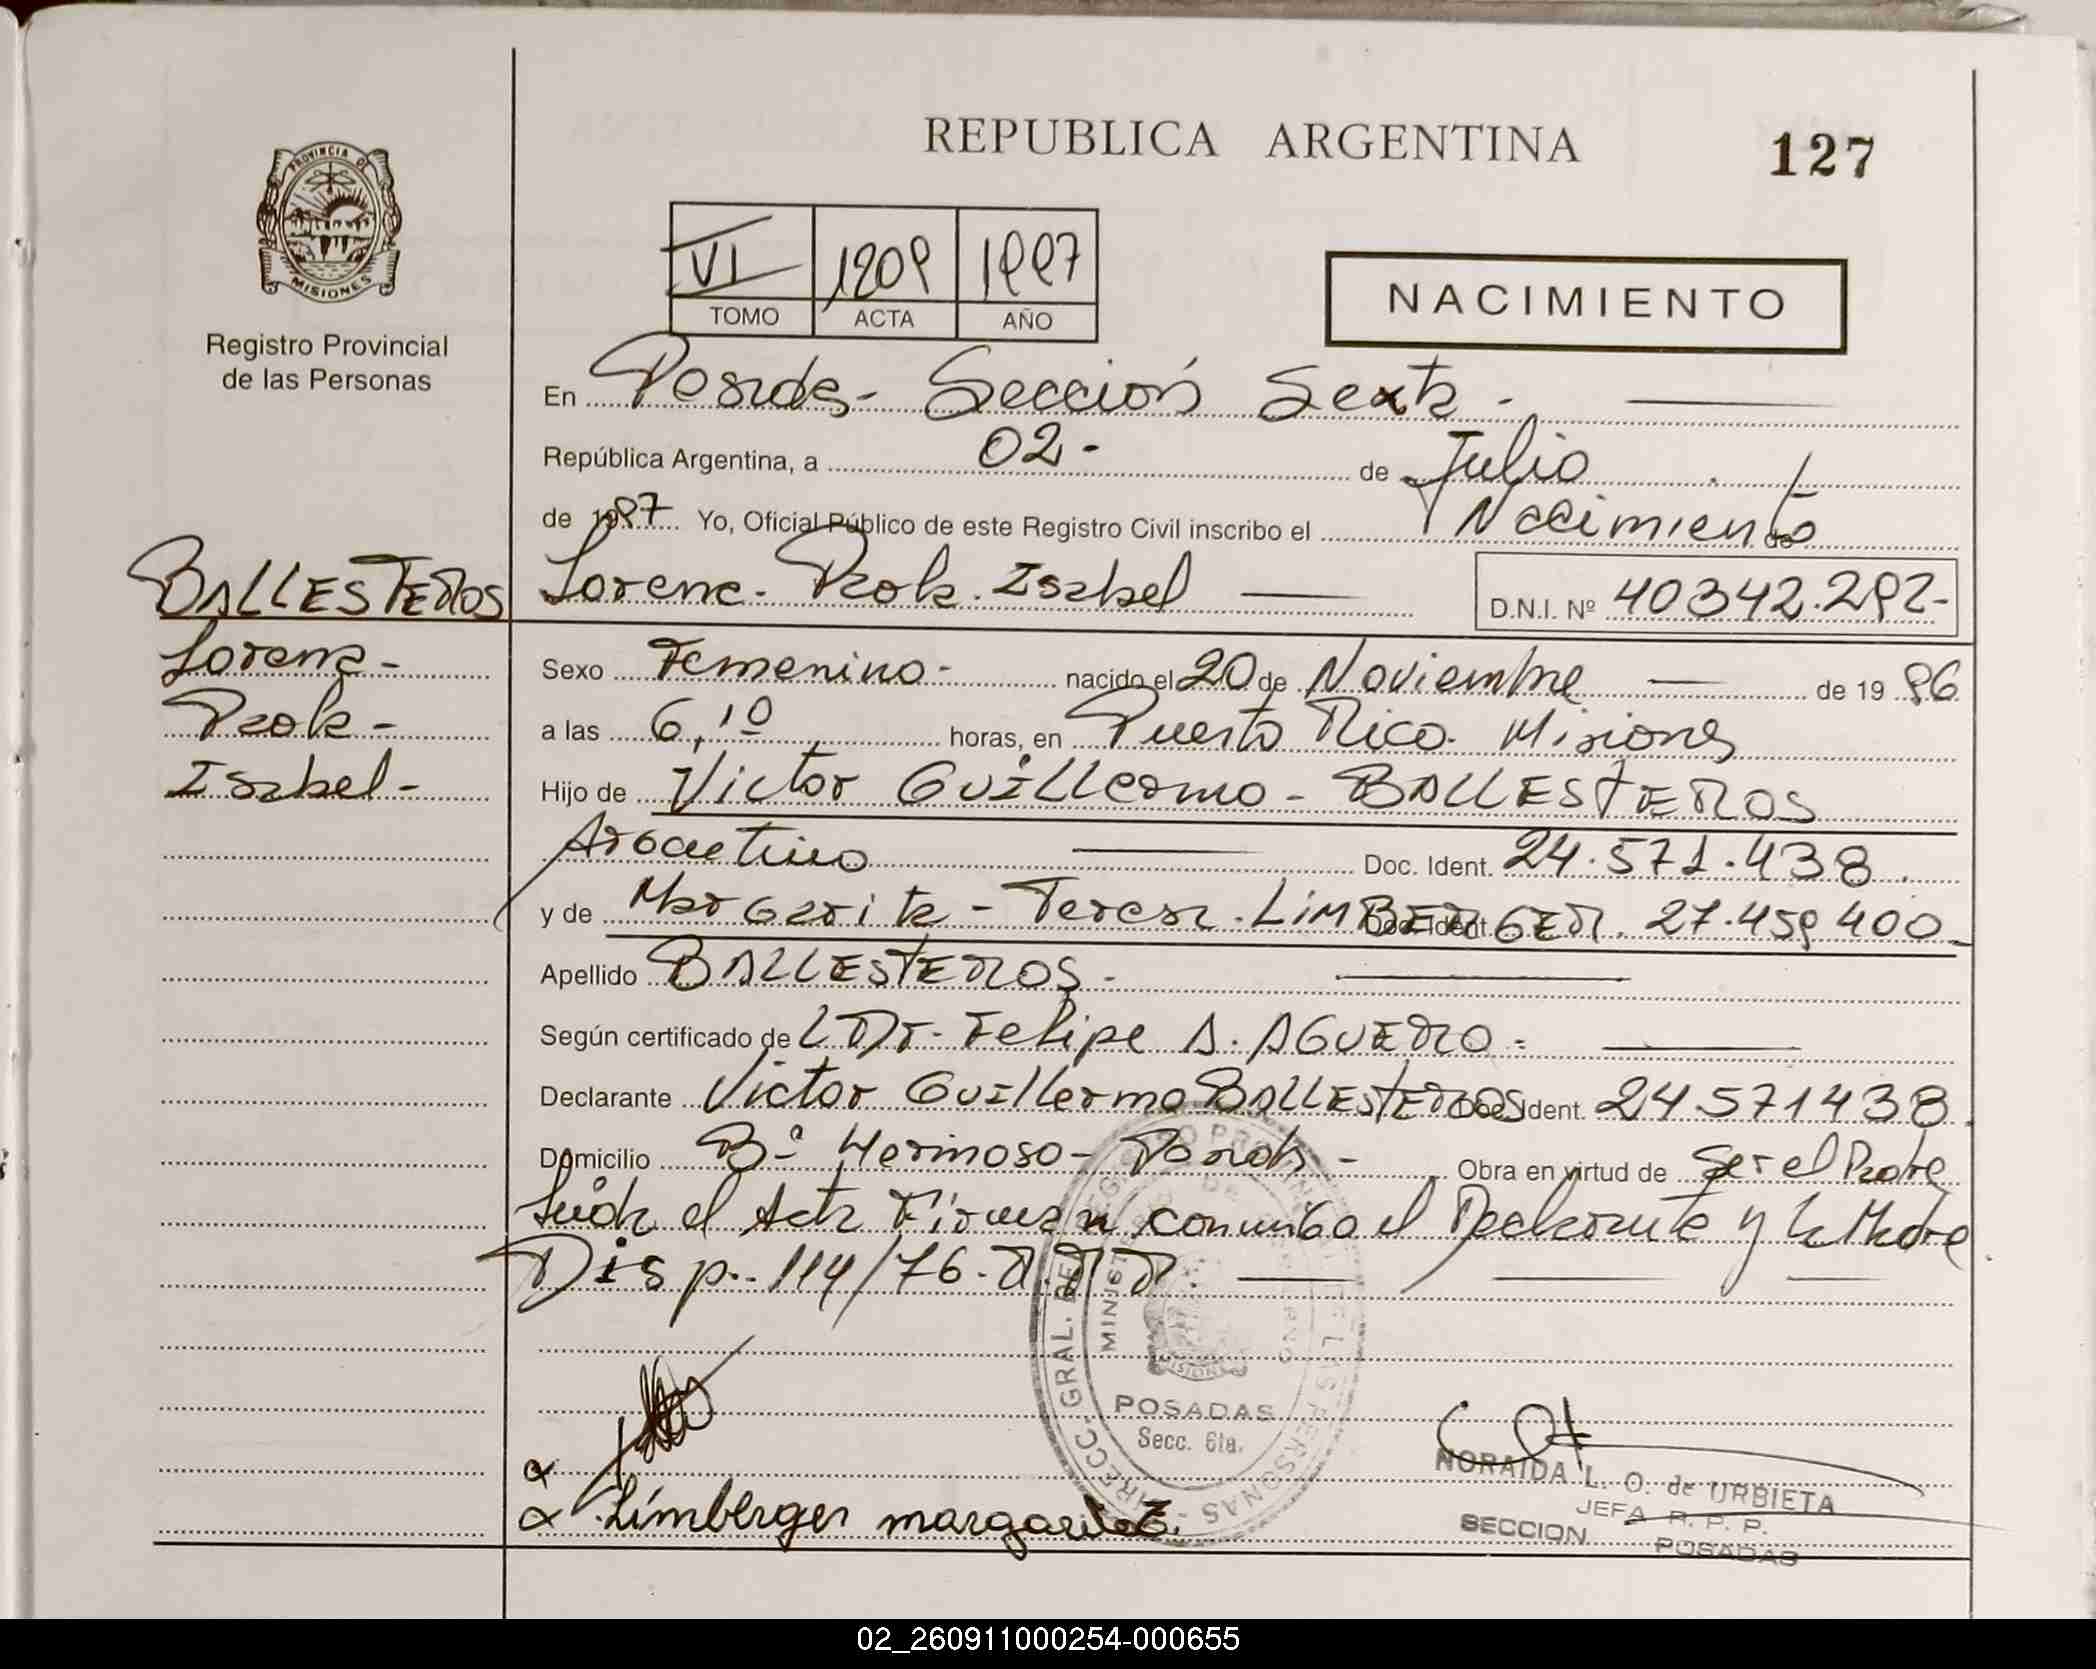 REPUBLICA ARGENTINA
127
PROVINCIA DE
MISIONES
Registro Provincial
de las Personas
VI 1209 1997
TOMO ACTA AÑO
NACIMIENTO
En Posadas - Sección Sexta -
República Argentina, a 02- de Julio
de 1997 Yo, Oficial Público de este Registro Civil inscribo el Nacimiento de
BALLESTEROS
Lorena - Paola - Isabel
D.N.I. Nº 40342.292-
Lorena -
Paola -
Isabel -
Sexo Femenino - nacido el 20 de Noviembre de 19 96
a las 6,10 horas, en Puerto Rico - Misiones
Hijo de Victor Guillermo - BALLESTEROS
Argentino Doc. Ident. 24.571.438.
y de Margarita - Teresa. LIMBERGER. Doc. Ident. 27.459 400-
Apellido BALLESTEROS -
Según certificado de Dr. Felipe A. AGUERO -
Declarante Victor Guillermo BALLESTEROS Doc. Ident. 24571438
Domicilio Bº Hermoso - Obra en virtud de Ser el Padre
Leída el Acta Firman conmigo el Declarante y la Madre
Disp. 114/76. R.P.P.
DIRECC. GRAL. DE
POSADAS
Secc. 6ta.
Limberger margarita
NORAIDA L. O. de URBIETA
JEFA R. P. P.
SECCION POSADAS
02_260911000254-000655